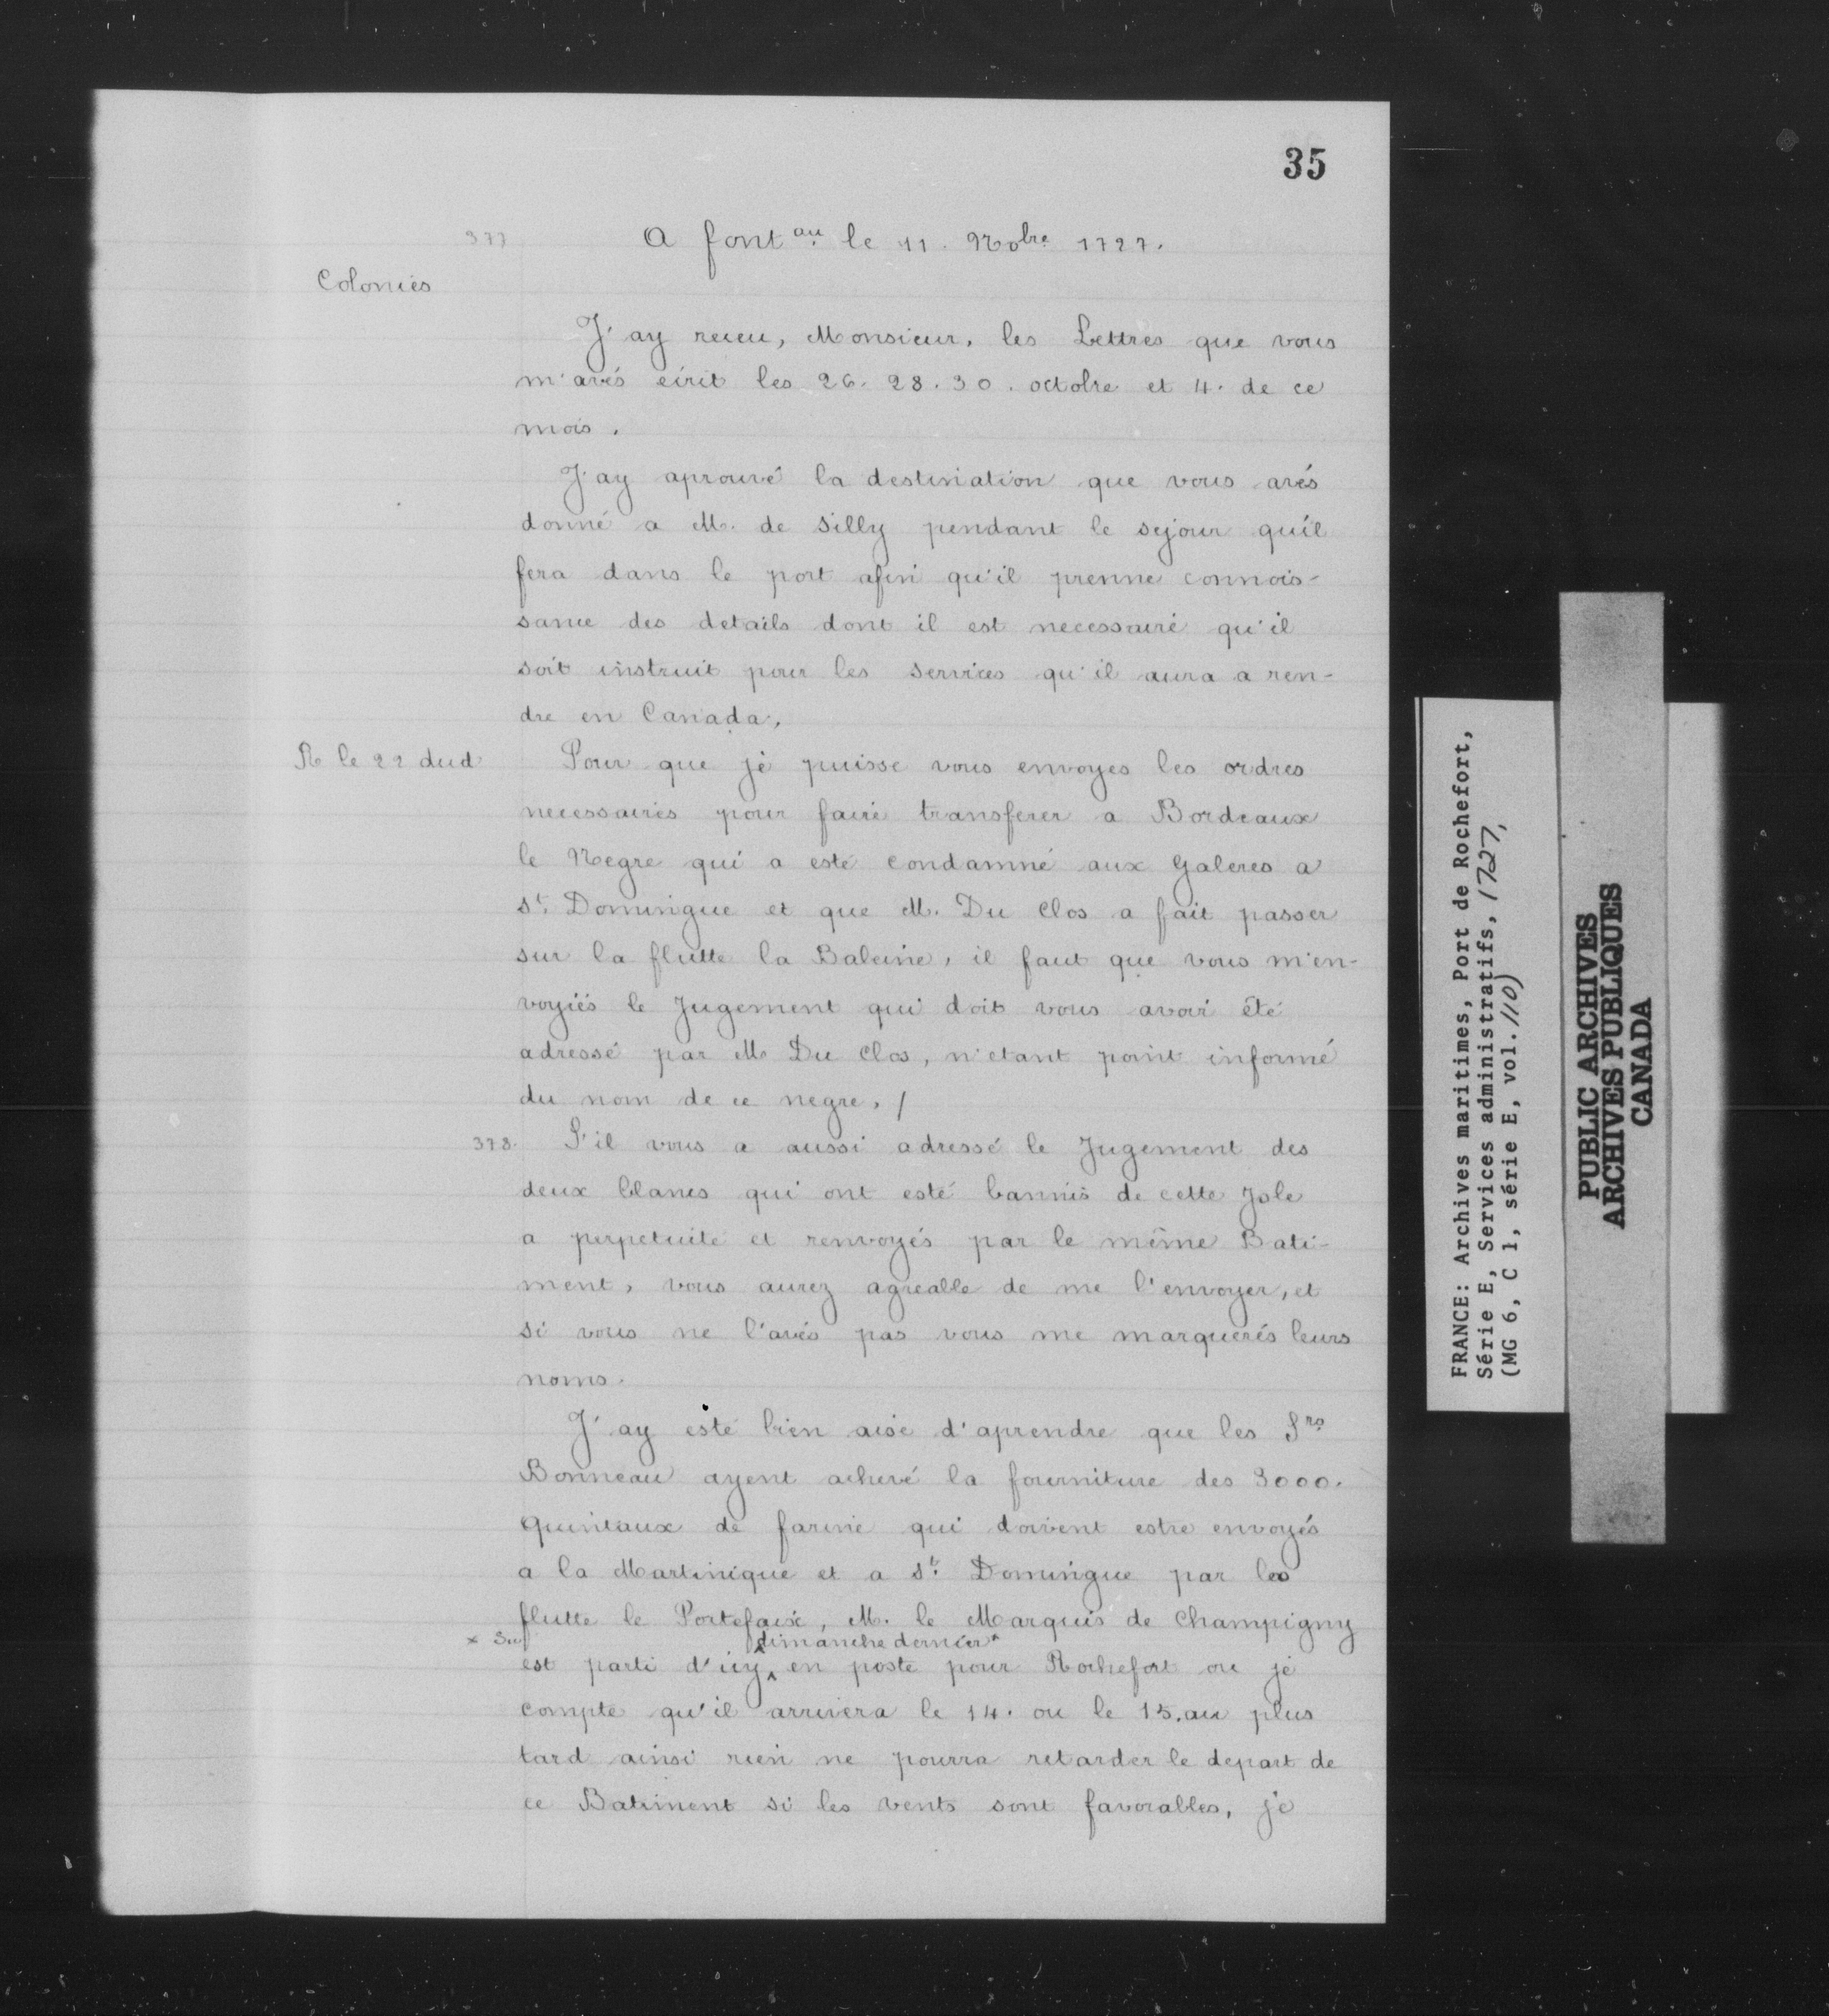 35
377
A font au le 11. Nobre 1727.
Colonies
J'ay receu, Monsieur, les Lettres que vous
m'avés écrit les 26. 28. 30. octobre et 4. de ce
mois.
J'ay aprouvé la destination que vous avés
donné a M. de Silly pendant le sejour qu'il
fera dans le port afin qu'il prenne connois-
sance des details dont il est necessaire qu'il
soit instruit pour les services qu'il aura a ren-
dre en Canada.
R le 22 dud
Pour que je puisse vous envoyes les ordres
necessaires pour faire transferer a Bordeaux
le Negre qui a esté condamné aux Galeres a
St. Domingue et que M. Du Clos a fait passer
sur la flutte la Baleine, il faut que vous m'en-
voyiés le Jugement qui doit vous avoir été
adressé par M. Du Clos, n'etant point informé
du nom de ce negre. /
378
S'il vous a aussi adressé le Jugement des
deux blancs qui ont esté bannis de cette Jsle
a perpetuité et renvoyés par le même Bati-
ment, vous aurez agreable de me l'envoyer, et
si vous ne l'avés pas vous me marquerés leurs
noms.
J'ay esté bien aise d'aprendre que les Srs
Bonneau ayent achevé la fourniture des 3000.
Quintaux de farine qui doivent estre envoyés
a la Martinique et a St. Domingue par la
flutte le Portefaix, M. le Marquis de Champigny
dimanche dernier*
est parti d'icy en poste pour Rochefort ou je
compte qu'il arrivera le 14. ou le 15. au plus
tard ainsi rien ne pourra retarder le depart de
ce Batiment si les vents sont favorables, je
FRANCE: Archives maritimes, Port de Rochefort,
Série E, Services administratifs, 1727,
(MG 6, C 1, série E, vol. 110)
PUBLIC ARCHIVES
ARCHIVES PUBLIQUES
CANADA